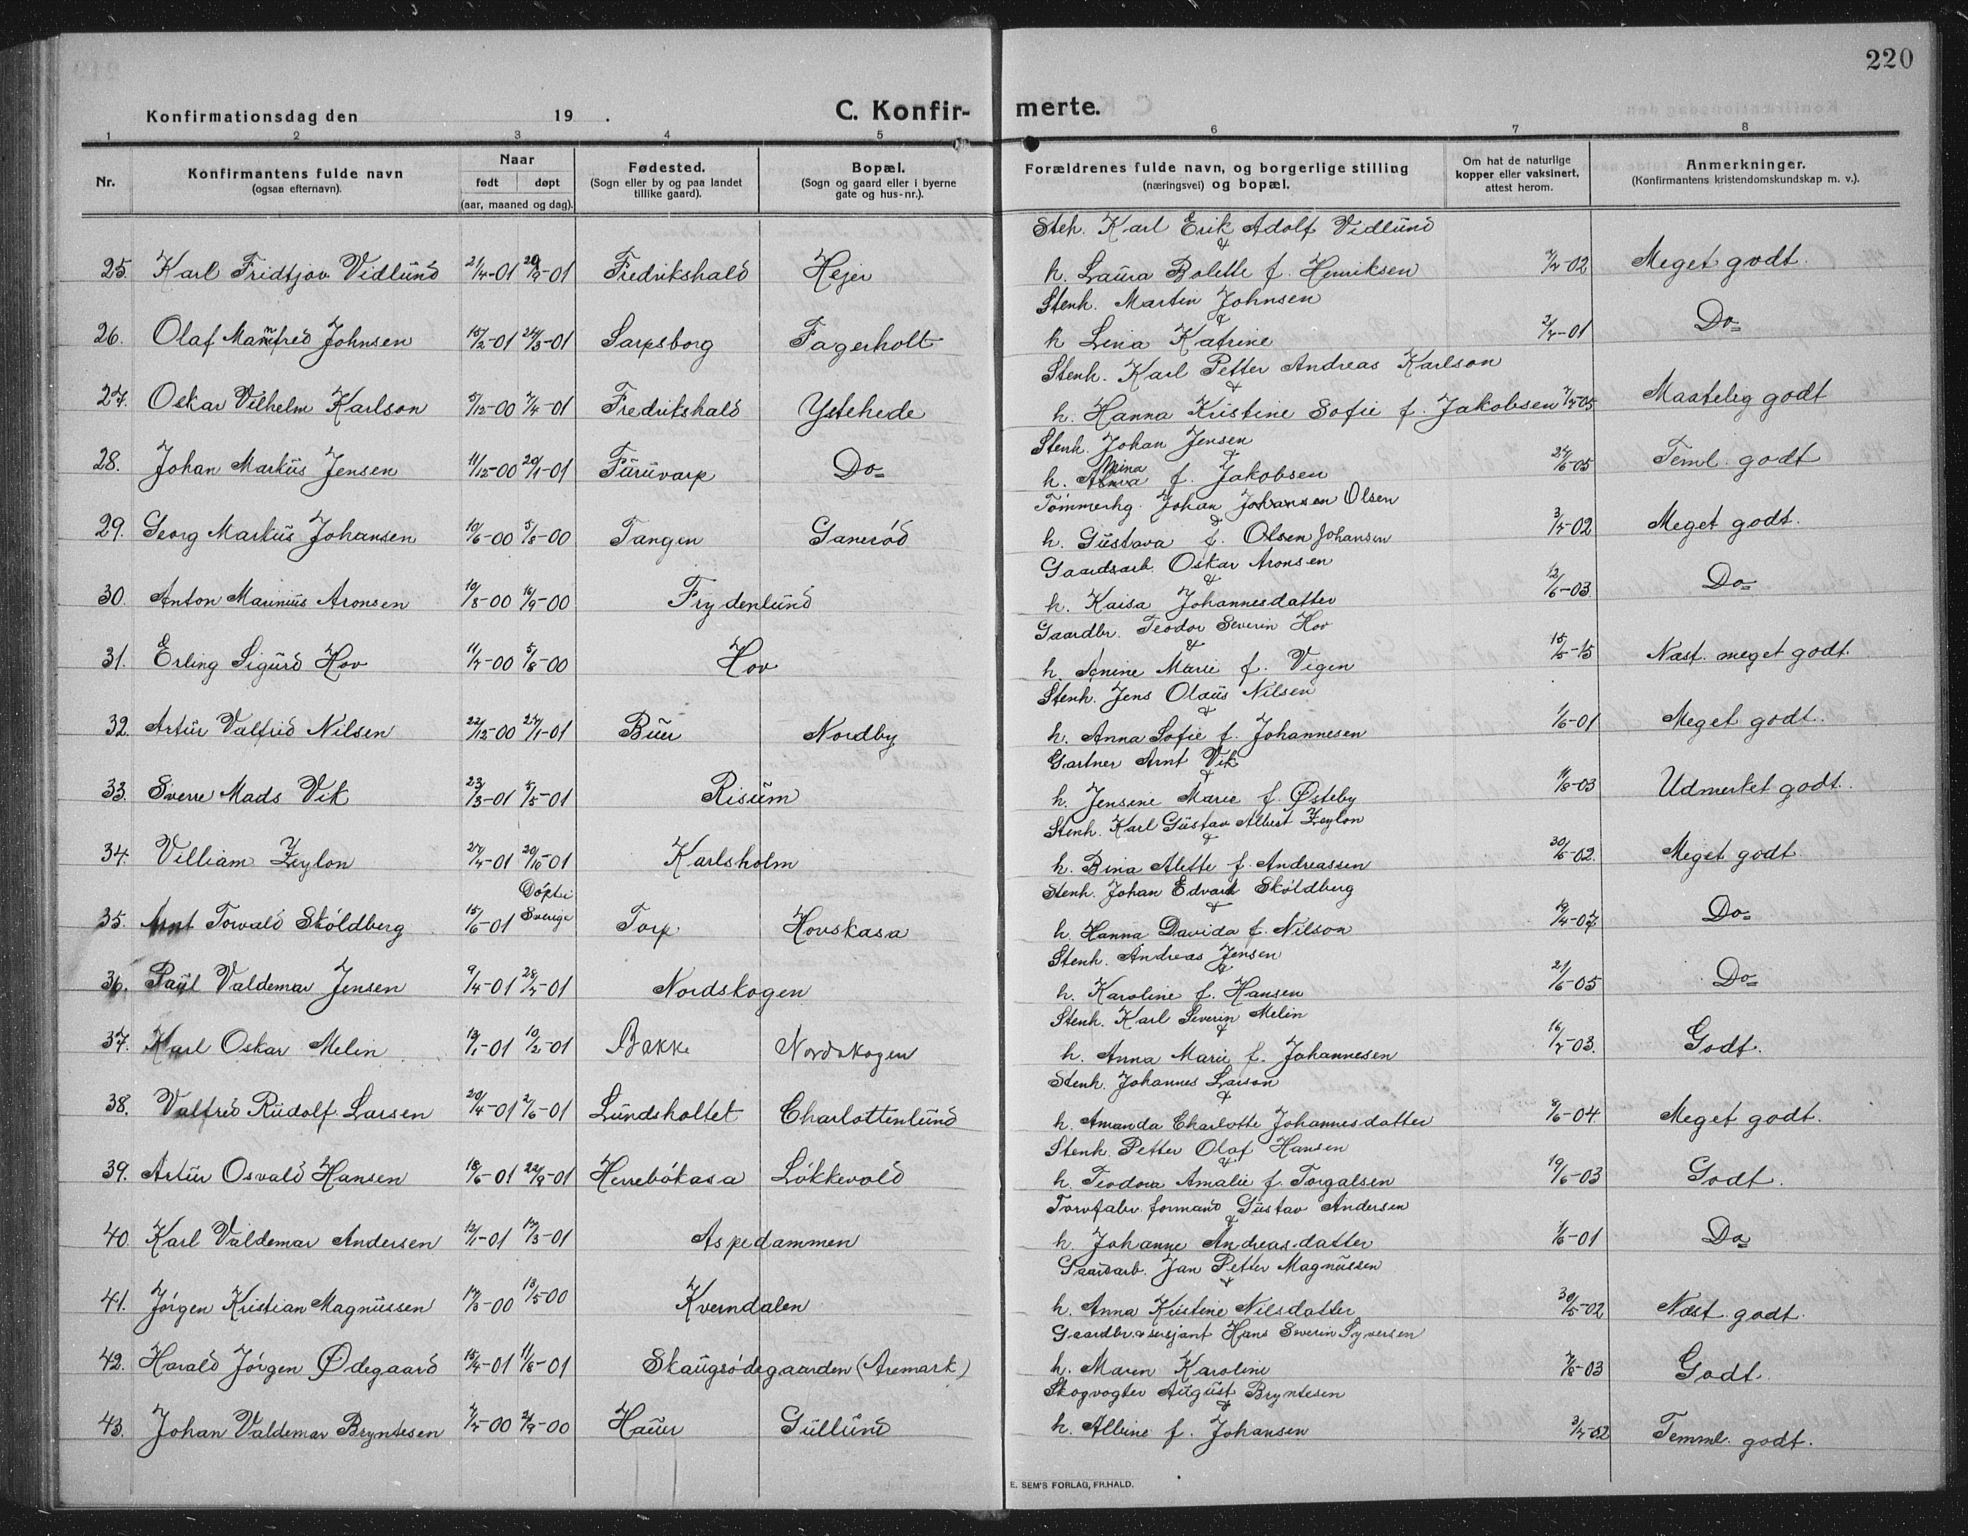 220
Konfirmationsdag den 19 .
C. Konfir-merte.
1 2 3 4 5 6 7 8
Nr. Konfirmantens fulde navn (ogsaa efternavn). Naar født døpt (aar, maaned og dag). Fødested. (Sogn eller by og paa landet tillike gaard). Bopæl. (Sogn og gaard eller i byerne gate og hus-nr.). Forældrenes fulde navn, og borgerlige stilling (næringsvei) og bopæl. Om hat de naturlige kopper eller vaksinert, attest herom. Anmerkninger. (Konfirmantens kristendomskundskap m. v.).
Steh. Karl Erik Adolf Vidlund
&
25. Karl Fridtjov Vidlund 21/4-01 29/9-01 Fredrikshald Hejer h. Laura Bolette f. Henriksen -02 Meget godt.
Stenh. Martin Johnsen
&
26. Olaf Manfred Johnsen 15/2-01 24/3-01 Sarpsborg Fagerholt h Lina Katrine 2/7-01 Do
Stenh. Karl Petter Andreas Karlson
&
27. Oskar Vilhelm Karlson 5/12-00 7/4-01 Fredrikshald Ystehede h. Hanna Kristine Sofie f. Jakobsen 7/7-05 Maatelig godt
Stenh. Johan Jensen
&
28. Johan Markus Jensen 11/12-00 20/1-01 Furuvarp Do h. Mina f. Jakobsen 24/6-05 Teml. godt
Tømmerhg. Johan Johansen Olsen
&
29. Georg Markus Johansen 10/6-00 5/8-00 Tangen Ganerød h. Gustava f. Olsen Johansen 3/7-02 Meget godt.
Gaardsarb. Oskar Aronsen
&
30. Anton Marinius Aronsen 10/8-00 16/9-00 Frydenlund h. Kaisa Johannesdatter 12/6-03 Do
Gaardbr. Teodor Severin Hov
&
31. Erling Sigurd Hov 11/7-00 5/8-00 Hov h. Marie f. Vegen 15/5-15 Næst. meget godt.
Stenh. Jens Olaus Nilsen
&
32. Artur Valfrid Nilsen 22/12-00 27/1-01 Buer Nordby h. Anna Sofie f. Johannesen 1/6-01 Meget godt.
Gartner Arnt Vik
&
33. Sverre Mads Vik 23/3-01 5/5-01 Risum h. Jensine Marie f. Østeby 11/8-03 Udmerket godt.
Stenh. Karl Gustav Albert Zeylon
&
34. Villiam Zeylon 27/4-01 20/10-01 Karlsholm h. Bina Alette f. Andreassen 30/6-02. Meget godt
Stenh. Johan Edvard Skøldberg
&
35. Arnt Torvald Skøldberg 15/6-01 Døpt i Sverige Torp Hovskasa h. Hanna Davida f. Nilson 19/4-07 Do
Stenh. Andreas Jensen
&
36. Paul Valdemar Jensen 9/4-01 28/7-01 Nordskogen h. Karoline f. Hansen 21/6-05 Do
Stenh. Karl Severin Melin
&
37. Karl Oskar Melin 13/1-01 10/2-01 Bakke Nordskogen h. Anna Marie f. Johannesen 16/7-03. Godt.
Stenh. Johannes Larson
&
38. Valfred Rudolf Larsen 20/4-01 2/6-01 Lundsholtet Charlottenlund h. Amanda Charlotte Johannesdatter 8/6-04. Meget godt.
Stenh. Petter Olaf Hansen
&
39. Artur Osvald Hansen 18/6-01 22/9-01 Herrebøkasa Løkkevold h. Teodora Amalie f. Torgalsen 19/6-03 Godt.
Torvfabr. formand Gustav Andersen
&
40. Karl Valdemar Andersen 12/1-01 17/3-01 Aspedammen h. Johanne Andreas-datter 1/6-01 Do
Gaardarb. Jan Petter Magnussen
&
41. Jørgen Kristian Magnussen 17/3-00 13/5 00 Kverndalen h. Anna Kristine Nilsdatter 30/5-02 Næst godt.
Gaardbr. & sersjant Hans Severin Syversen
42. Harald Jørgen Ødegaard 15/4-01 11/6-01 Skaugsødegaarden (Aremark) h. Maren Karoline 7/8-03 Godt.
Skogvogter August Bryntesen
&
43. Johan Valdemar Bryntesen -00 2/9-00 Hauer Gullund h. Albine f. Johansen 3/7-02 Temml. godt.
E. SEM'S FORLAG, FR.HALD.